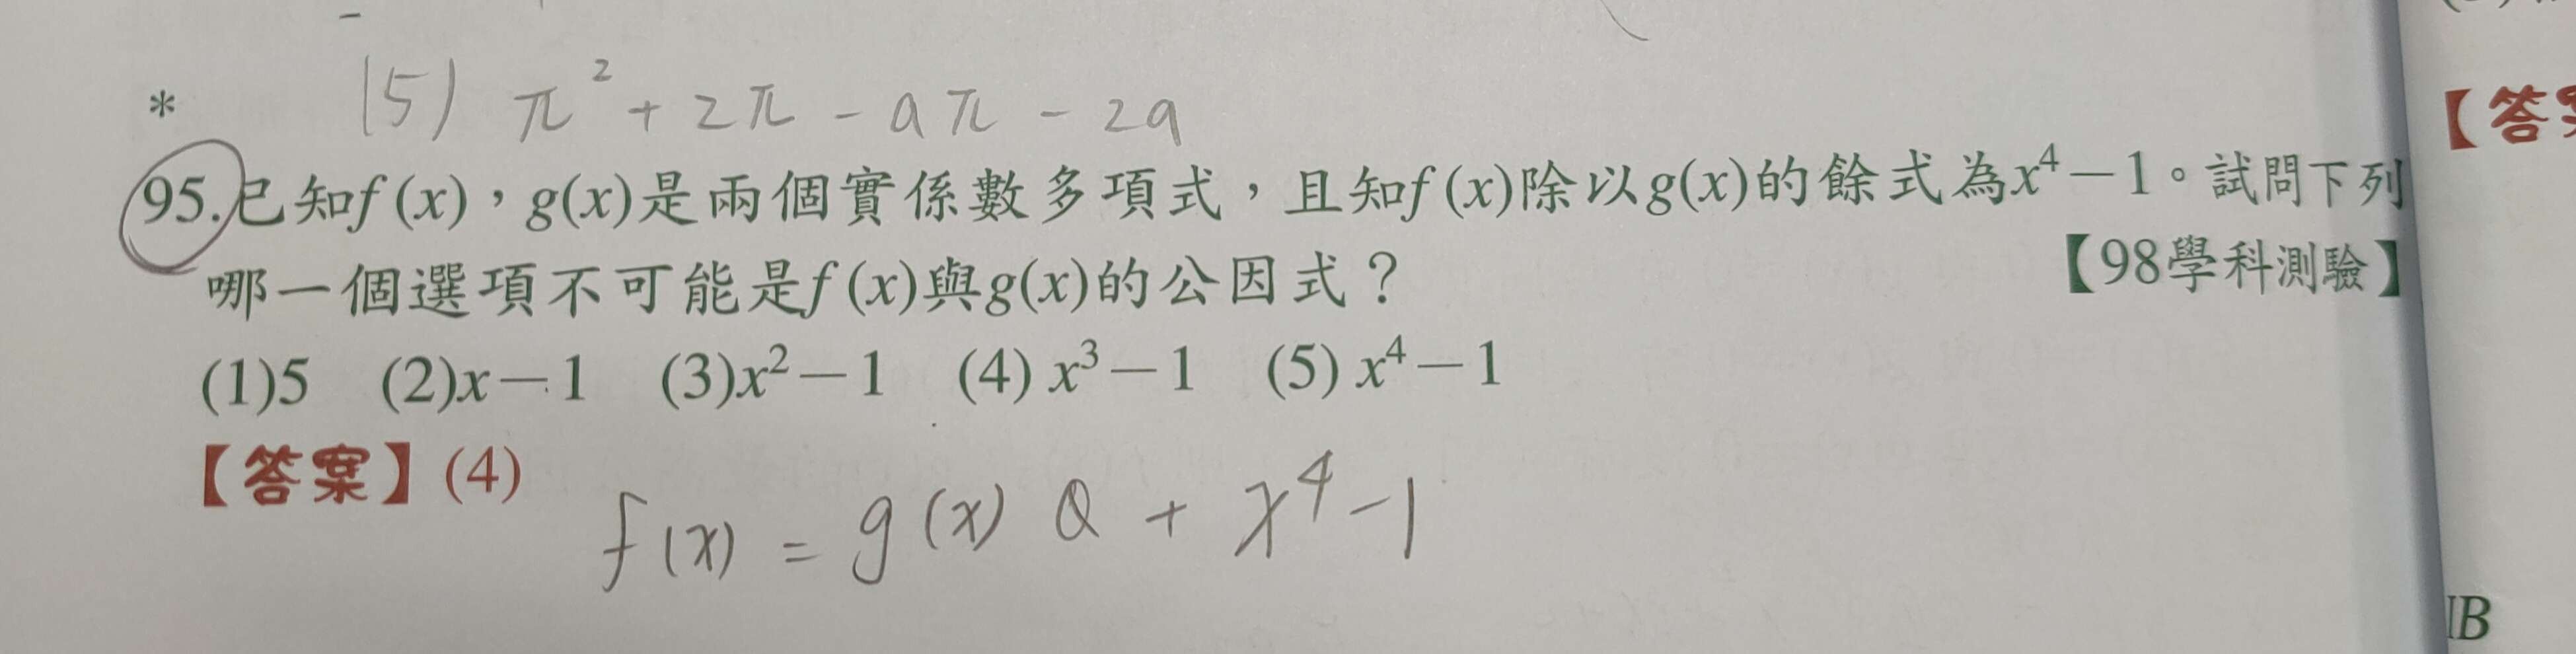 (5) π² + 2π - aπ - 2a
*
95.已知f(x),g(x)是兩個實係數多項式,且知f(x)除以g(x)的餘式為x⁴-1。試問下列
哪一個選項不可能是f(x)與g(x)的公因式? 【98學科測驗】
(1)5 (2)x-1 (3)x²-1 (4) x³-1 (5) x⁴-1
【答案】(4)
f(x) = g(x) Q + x⁴-1
【答
IB